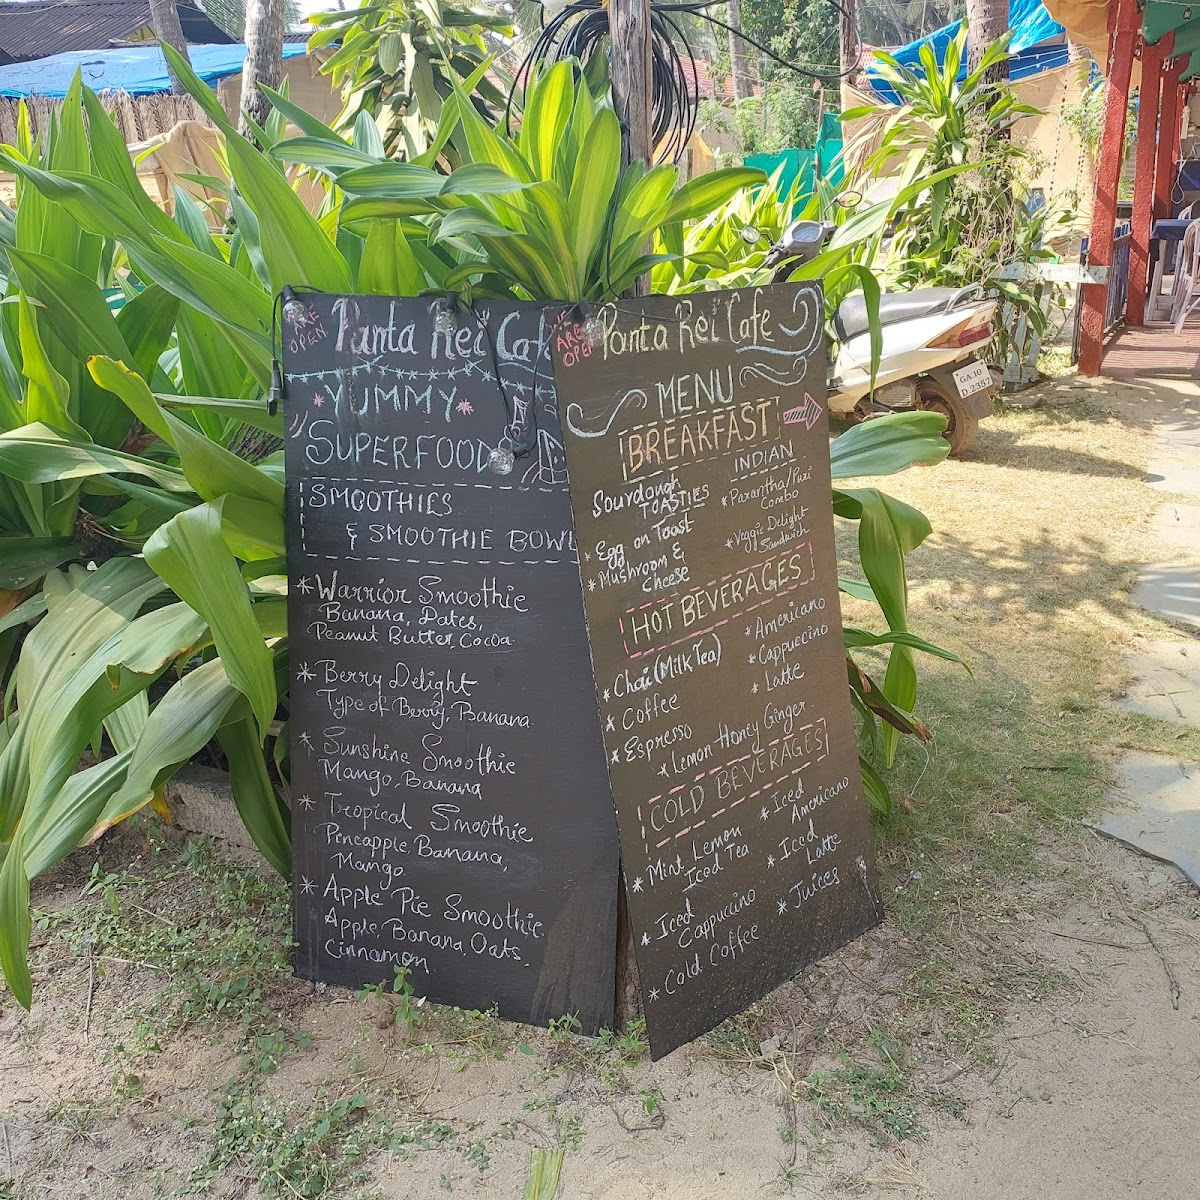 WE ARE OPEN
Panta Rei Cafe
YUMMY
SUPERFOOD
SMOOTHIES
& SMOOTHIE BOWL
* Warrior Smoothie
Banana, Dates,
Peanut Butter, Cocoa.
* Berry Delight
Type of Berry, Banana.
* Sunshine Smoothie
Mango, Banana
* Tropical Smoothie
Pineapple, Banana,
Mango
* Apple Pie Smoothie.
Apple, Banana, Oats,
Cinnamon
WE
ARE
OPEN
Panta Rei Cafe
MENU
BREAKFAST
Sourdough
TOASTIES
* Egg on Toast
* Mushroom &
Cheese
INDIAN
* Parantha/Puri
Combo
* Veggie Delight
Sandwich
HOT BEVERAGES
* Chai (Milk Tea)
* Coffee
* Espresso
* Americano
* Cappuccino
* Latte
* Lemon Honey Ginger.
COLD BEVERAGES
* Mint Lemon
Iced Tea
* Iced
Cappuccino
* Cold Coffee
* Iced
Americano
* Iced
Latte
* Juices
GA.10
D.2357